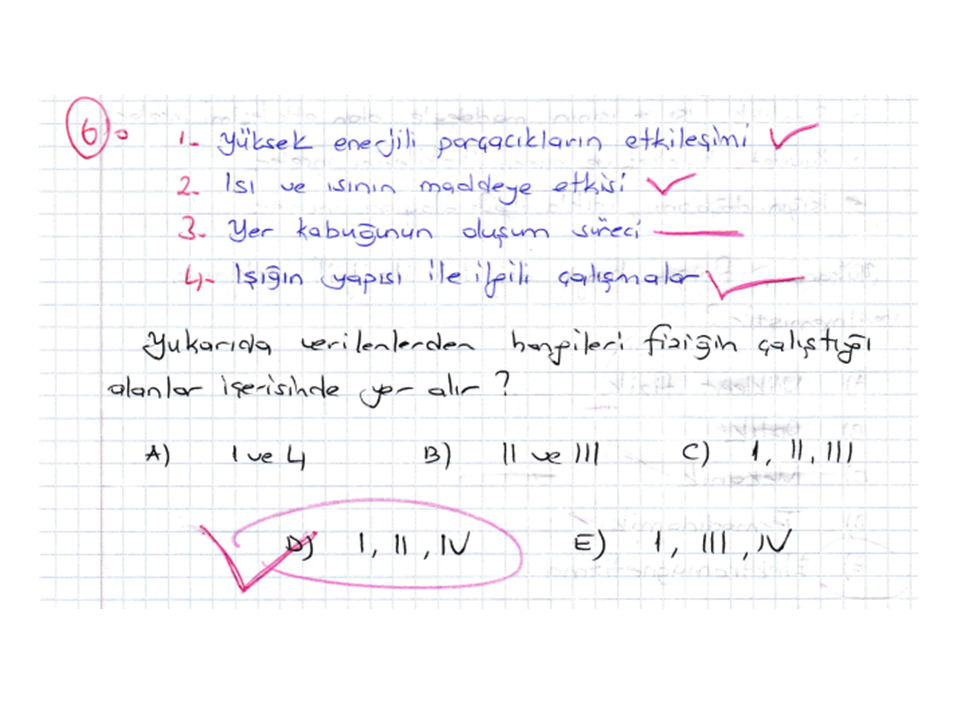 6.
1- Yüksek enerjili parçacıkların etkileşimi
2- Isı ve ısının maddeye etkisi
3- Yer kabuğunun oluşum süreci
4- Işığın yapısı ile ilgili çalışmalar
Yukarıda verilenlerden hangileri fiziğin çalıştığı
alanlar içerisinde yer alır?
A) I ve 4 B) II ve III C) I, II, III
D) I, II, IV E) I, III, IV